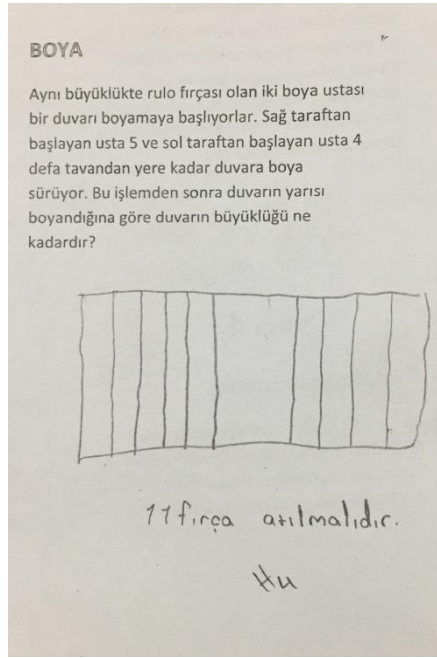 BOYA
Aynı büyüklükte rulo fırçası olan iki boya ustası
bir duvarı boyamaya başlıyorlar. Sağ taraftan
başlayan usta 5 ve sol taraftan başlayan usta 4
defa tavandan yere kadar duvara boya
sürüyor. Bu işlemden sonra duvarın yarısı
boyandığına göre duvarın büyüklüğü ne
kadardır?
11 fırça atılmalıdır.